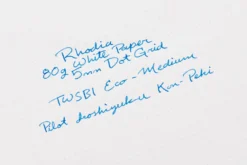 Rhodia
80g White Paper
5mm Dot Grid
TWSBI Eco - Medium
Pilot Iroshizuku Kon-Peki